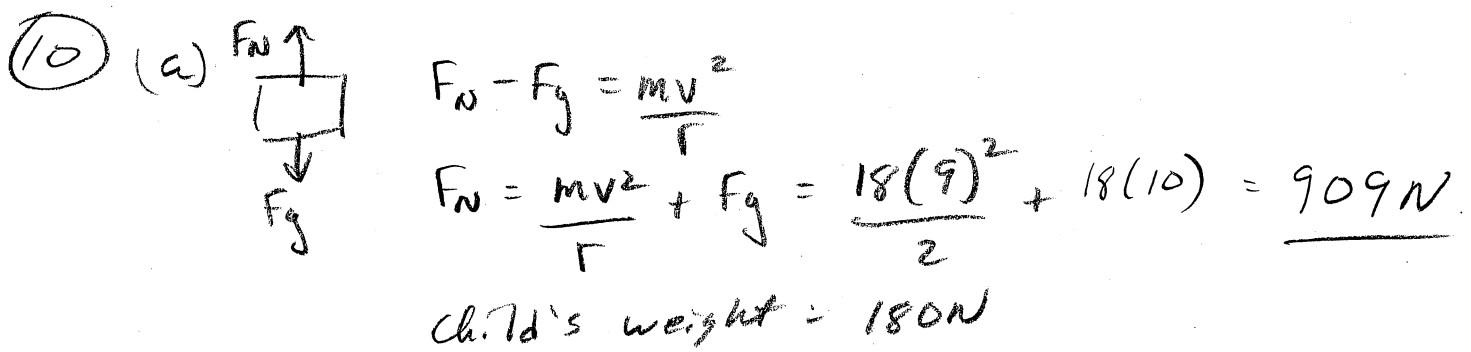 10 (a) FN
FN - Fg = mv²/r
FN = mv²/r + Fg = 18(9)²/2 + 18(10) = 909N
Fg
child's weight = 180N